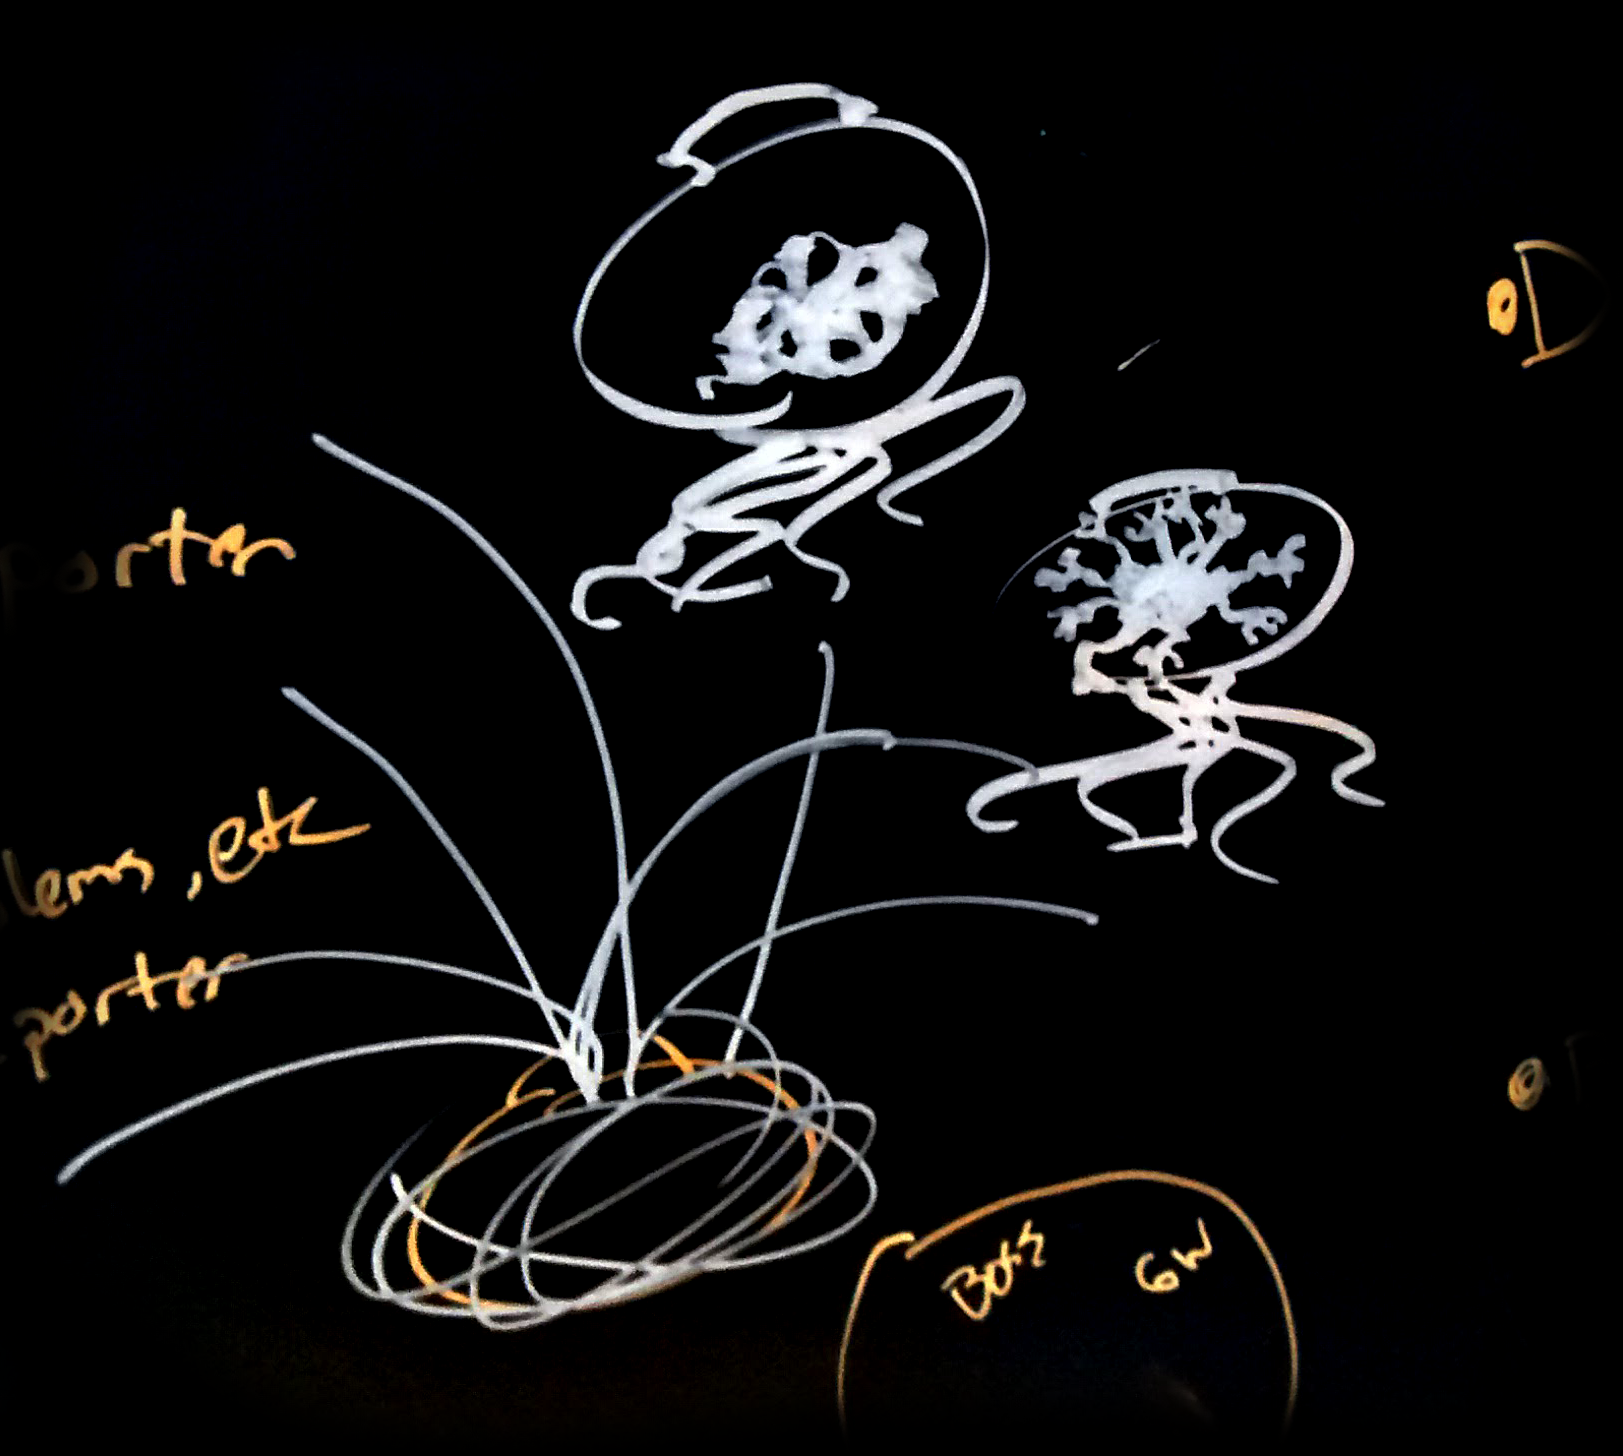 porter
lems, etc
porter
D
Bots GW